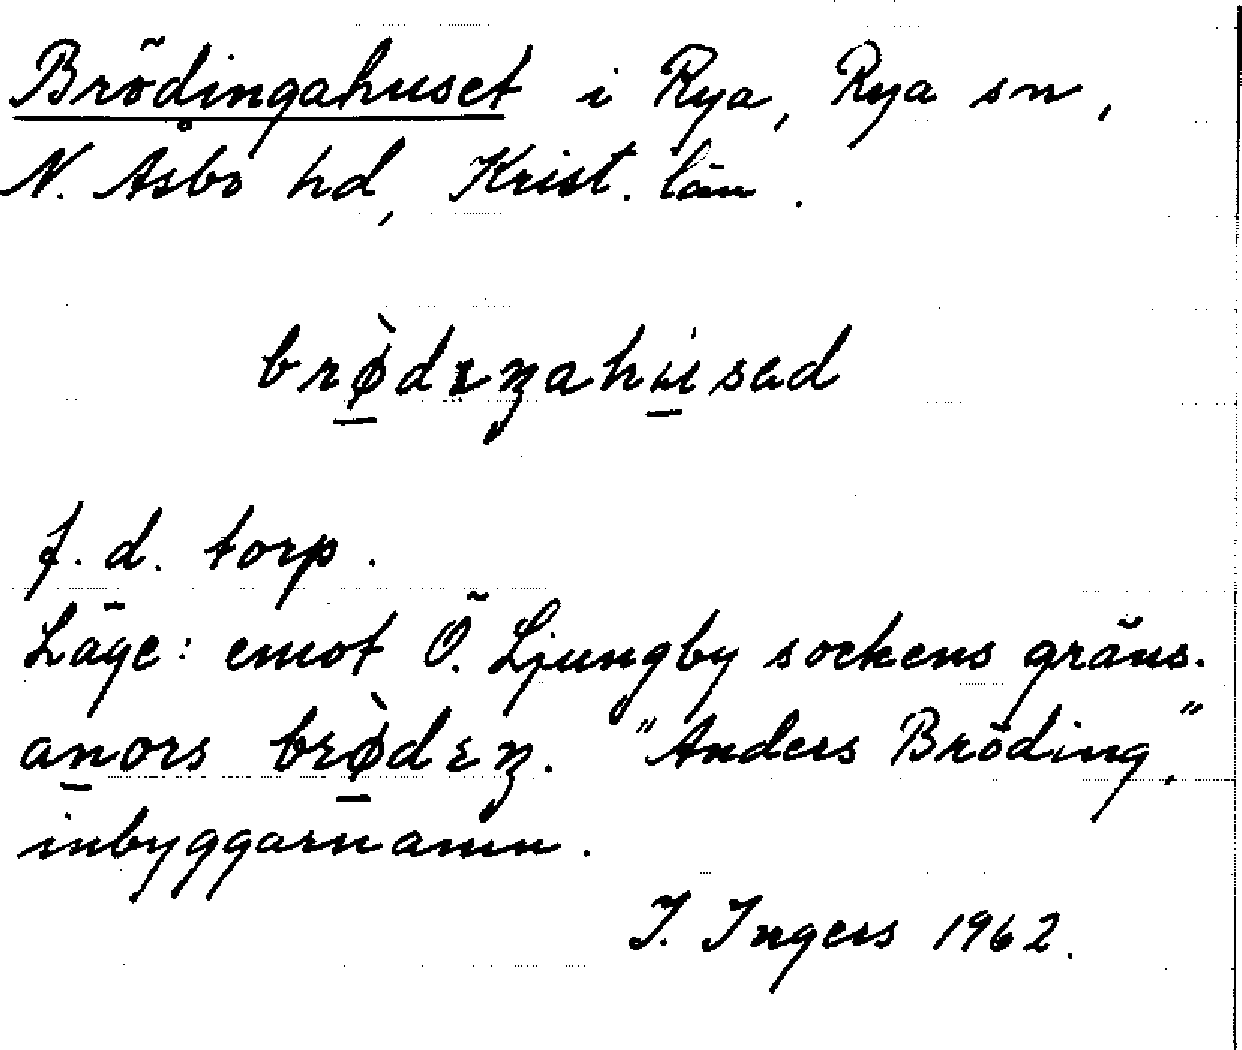 Brödingahuset i Rya, Rya sn,
N. Åsbo hd, Krist. län.
brø̀dɪŋahu̇sad
f.d. torp.
Läge: emot Ö. Ljungby sockens gräns.
anors brø̀dɪŋ. "Anders Bröding".
inbyggarnamn.
I. Ingers 1962.